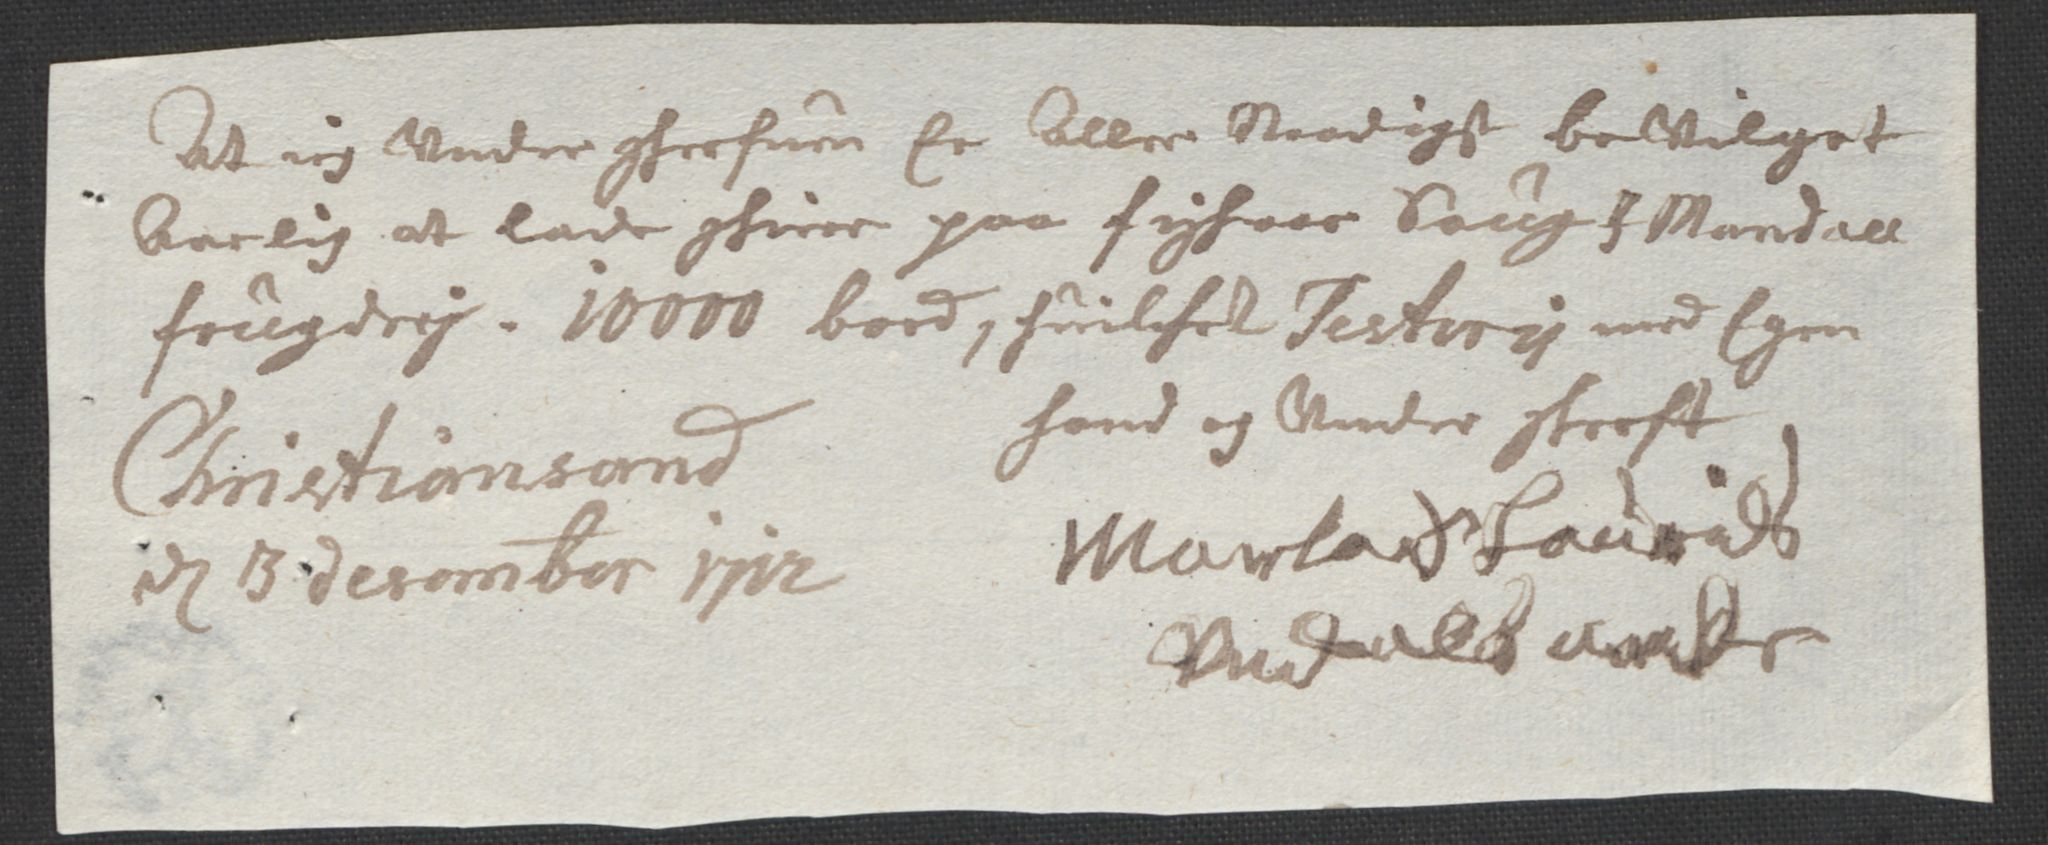 At ieg Under skrefuen Er Aller Naadigst be Vilget
Aarlig at lade skiere paa fiskaae Saug J Mandall
frugderj. 10000 bord, huilchet Testerij med Egen
hand og Under skreft
Christiansand
dn 13 desember 1712
Laurids